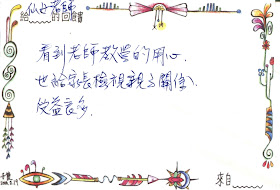 仙女老師
給 的回饋
看到老師教學的用心,
也給家長檢視親子關係,
受益良多.
來自